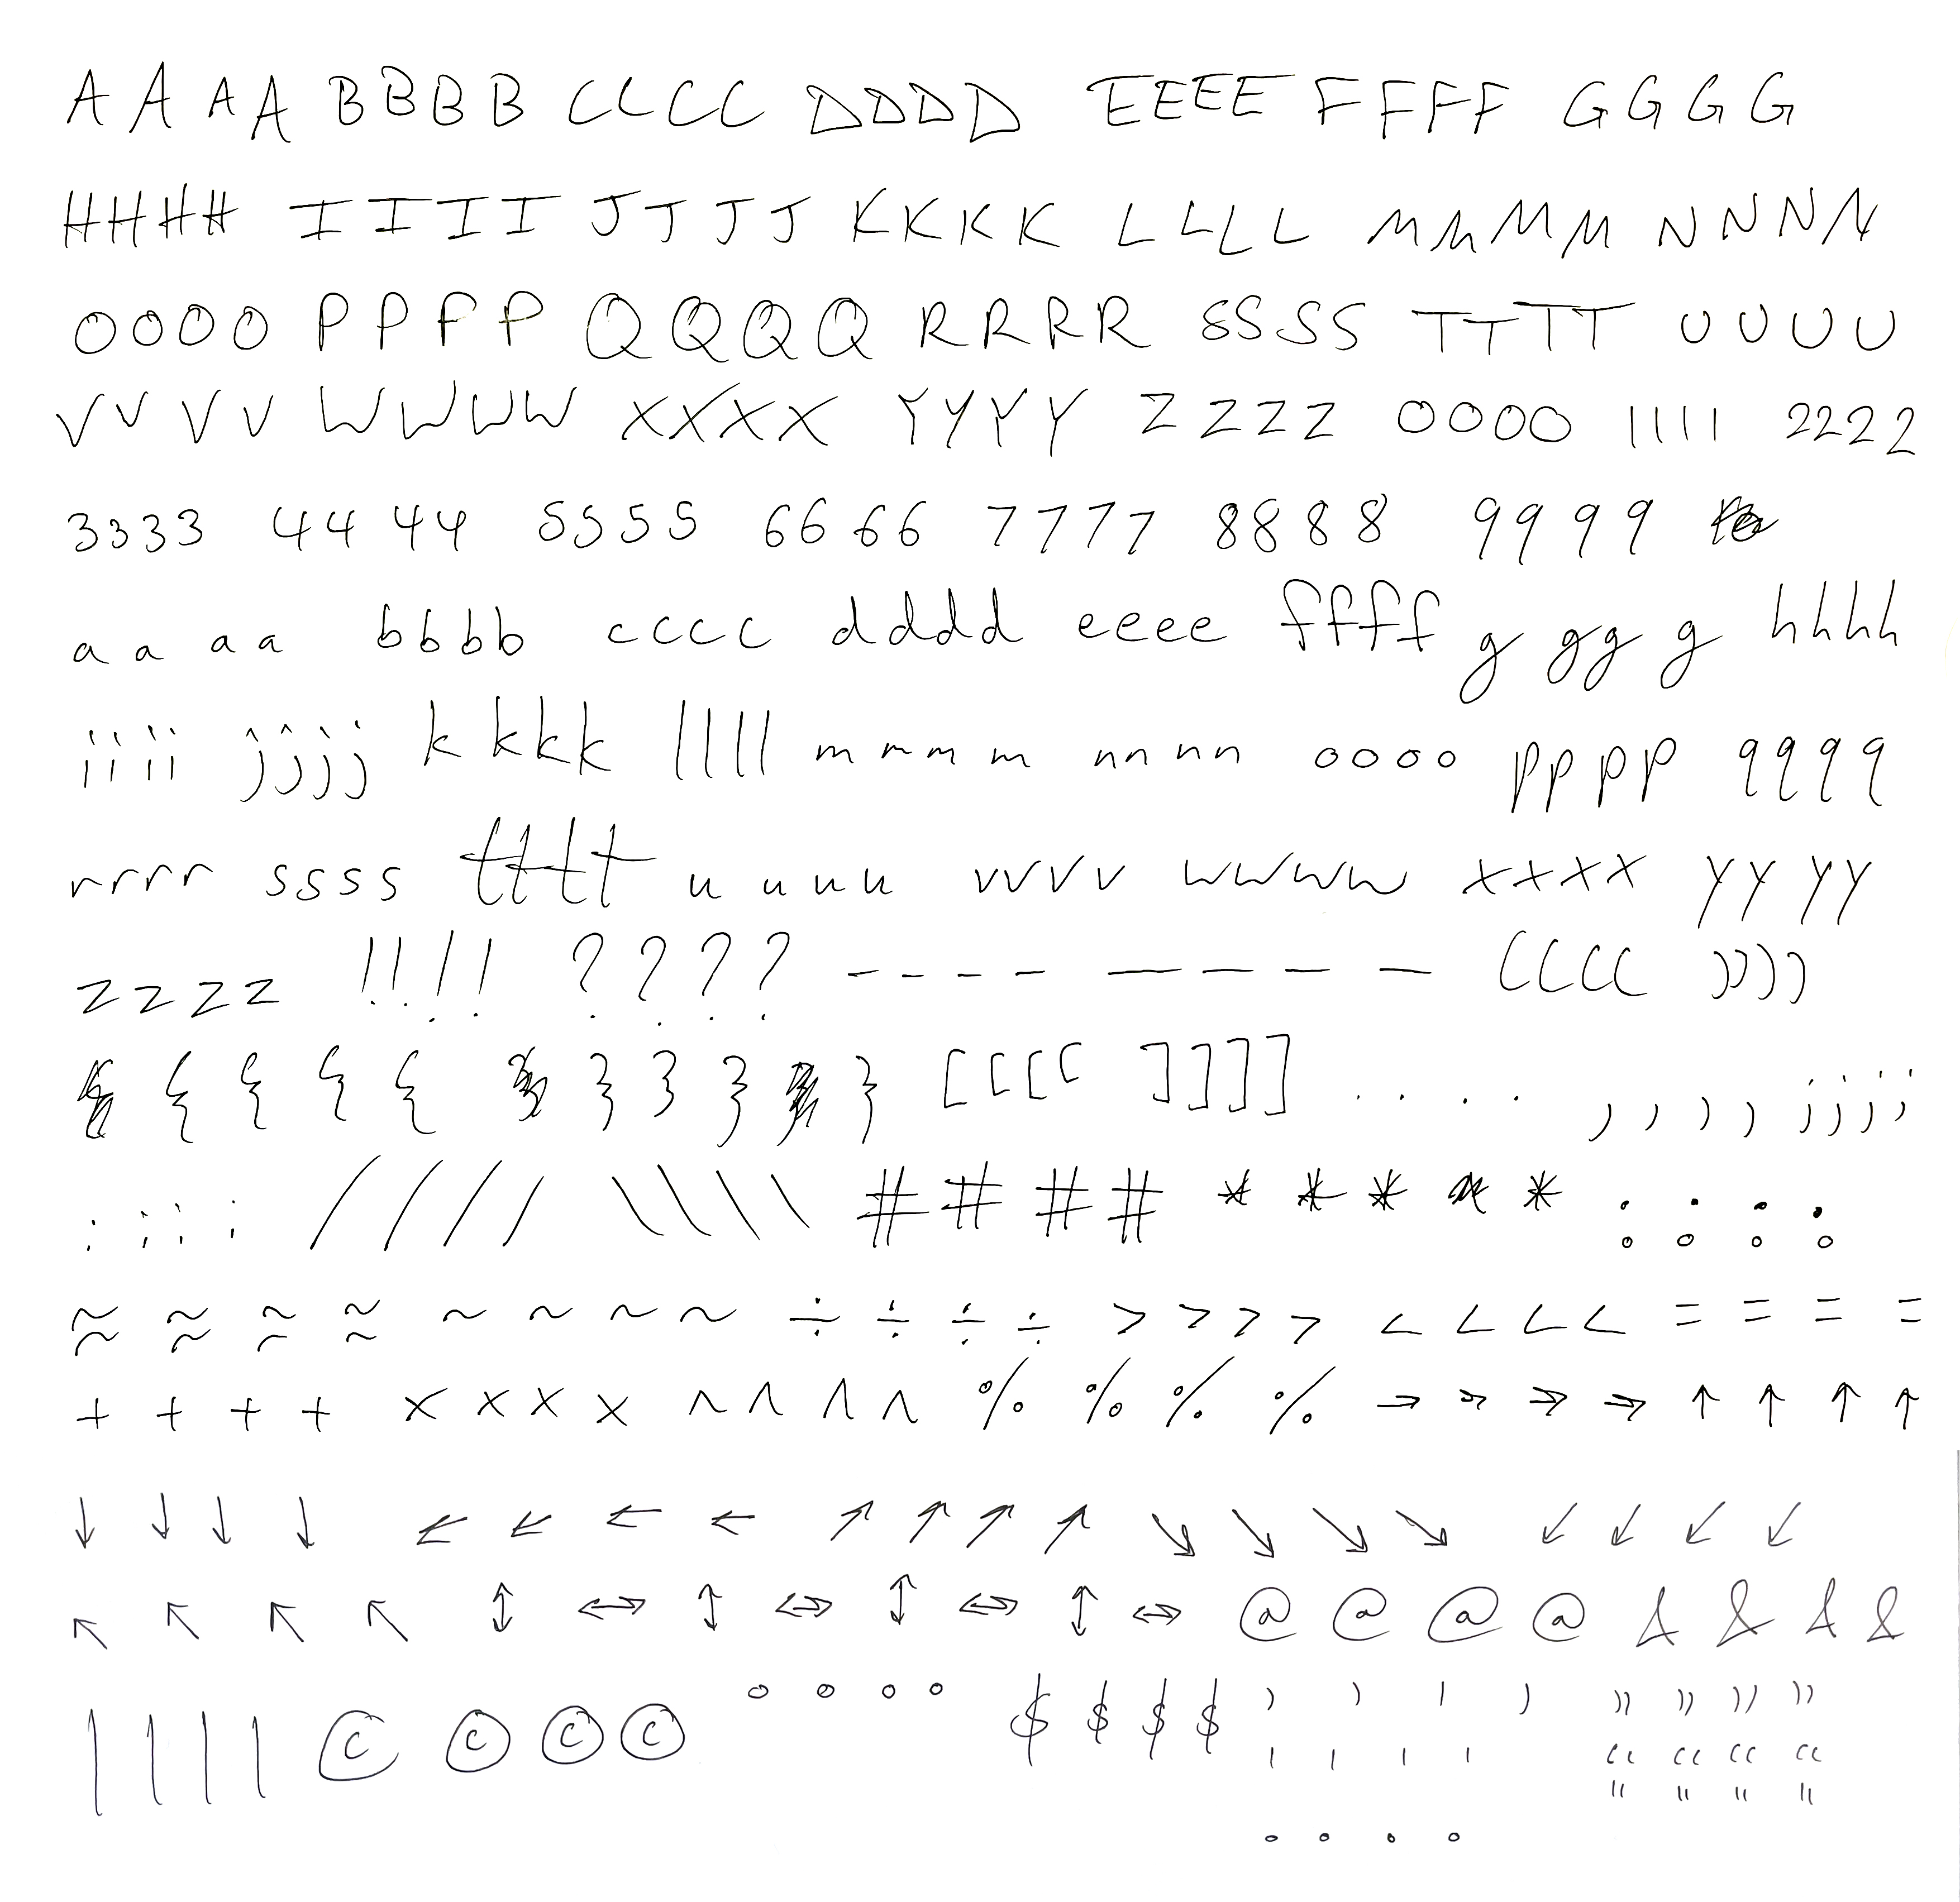 A A A A B B B B C C C C D D D D E E E E F F F F G G G G
H H H H I I I I J J J J K K K K L L L L M M M M N N N N
O O O O P P P P Q Q Q Q R R R R S S S S T T T T U U U U
V V V V W W W W X X X X Y Y Y Y Z Z Z Z 0 0 0 0 1 1 1 1 2 2 2 2
3 3 3 3 4 4 4 4 5 5 5 5 6 6 6 6 7 7 7 7 8 8 8 8 9 9 9 9
a a a a b b b b c c c c d d d d e e e e f f f f g g g g h h h h
i i i i j j j j k k k k l l l l m m m m n n n n o o o o p p p p q q q q
r r r r s s s s t t t t u u u u v v v v w w w w x x x x y y y y
z z z z ! ! ! ! ? ? ? ? - - - - — — — — ( ( ( ( ) ) ) )
{ { { { } } } } [ [ [ [ ] ] ] ] . . . . , , , , ; ; ; ;
: : : : / / / / \ \ \ \ # # # # * * * * : : : :
≈ ≈ ≈ ≈ ~ ~ ~ ~ ÷ ÷ ÷ ÷ > > > > < < < < = = = =
+ + + + × × × × ^ ^ ^ ^ % % % % → → → → ↑ ↑ ↑ ↑
↓ ↓ ↓ ↓ ← ← ← ← ↗ ↗ ↗ ↗ ↘ ↘ ↘ ↘ ↙ ↙ ↙ ↙
↖ ↖ ↖ ↖ ↕ ↔ ↕ ↔ ↕ ↔ ↕ ↔ @ @ @ @ & & & &
| | | | © © © © ° ° ° ° $ $ $ $ ’ ’ ’ ’ ” ” ” ”
' ' ' ' “ “ “ “
" " " "
. . . .